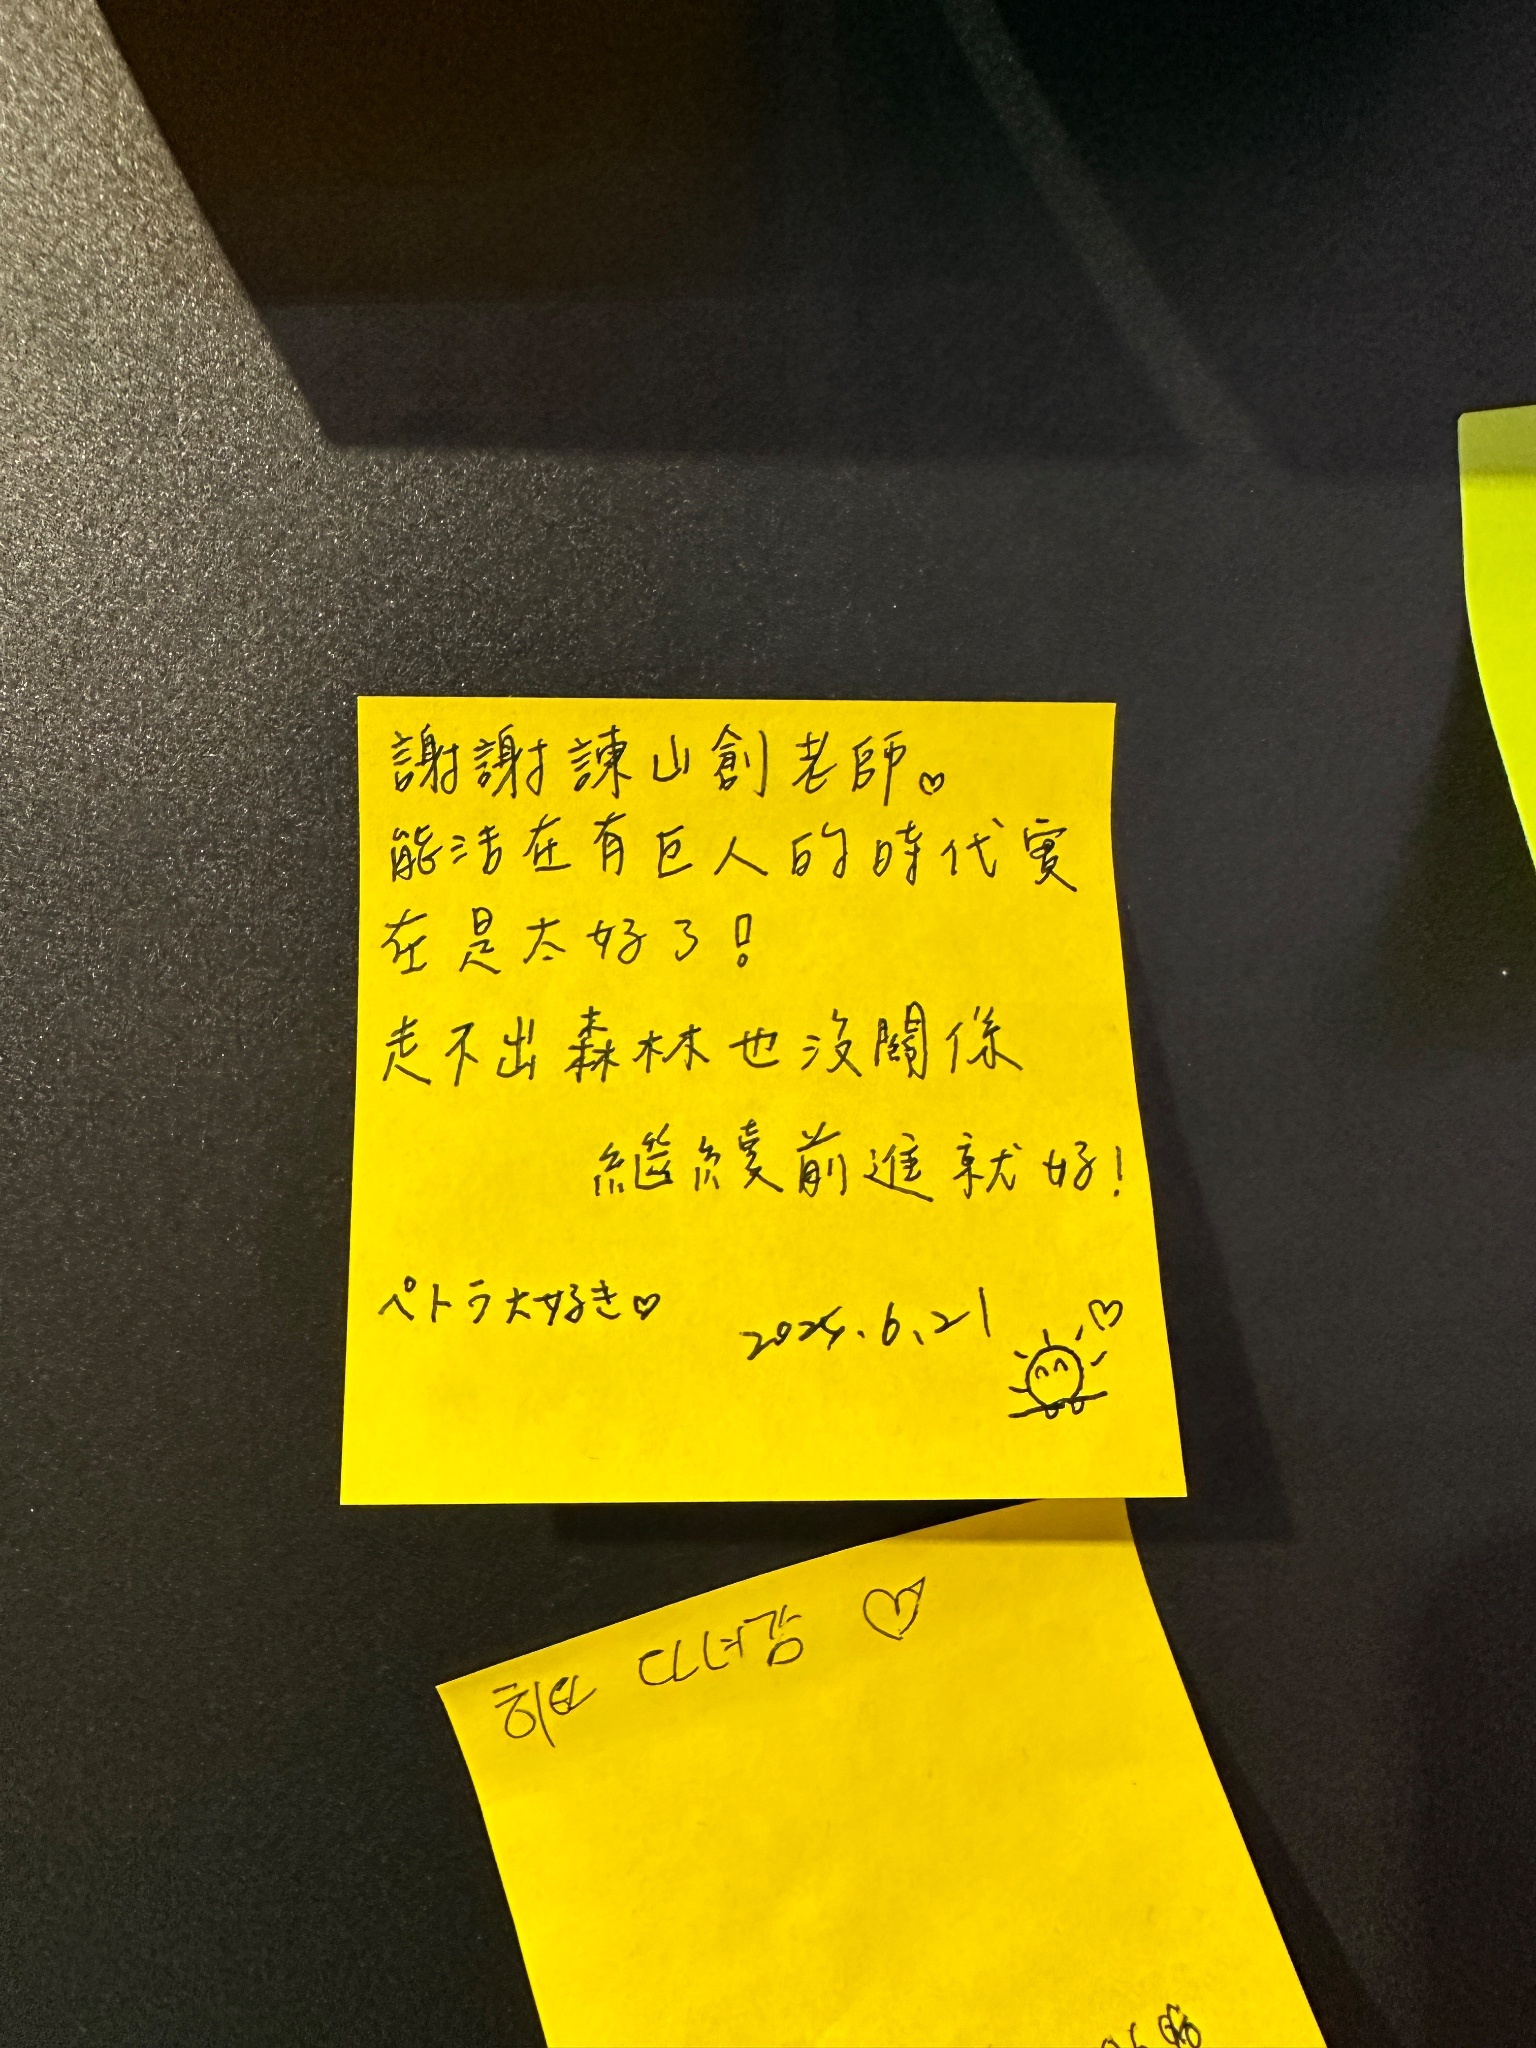 謝謝諫山創老師。♡
能活在有巨人的時代實
在是太好了!
走不出森林也沒關係
繼續前進就好!
ペトラ大好き♡
2025.6.21
다녀감 ♡